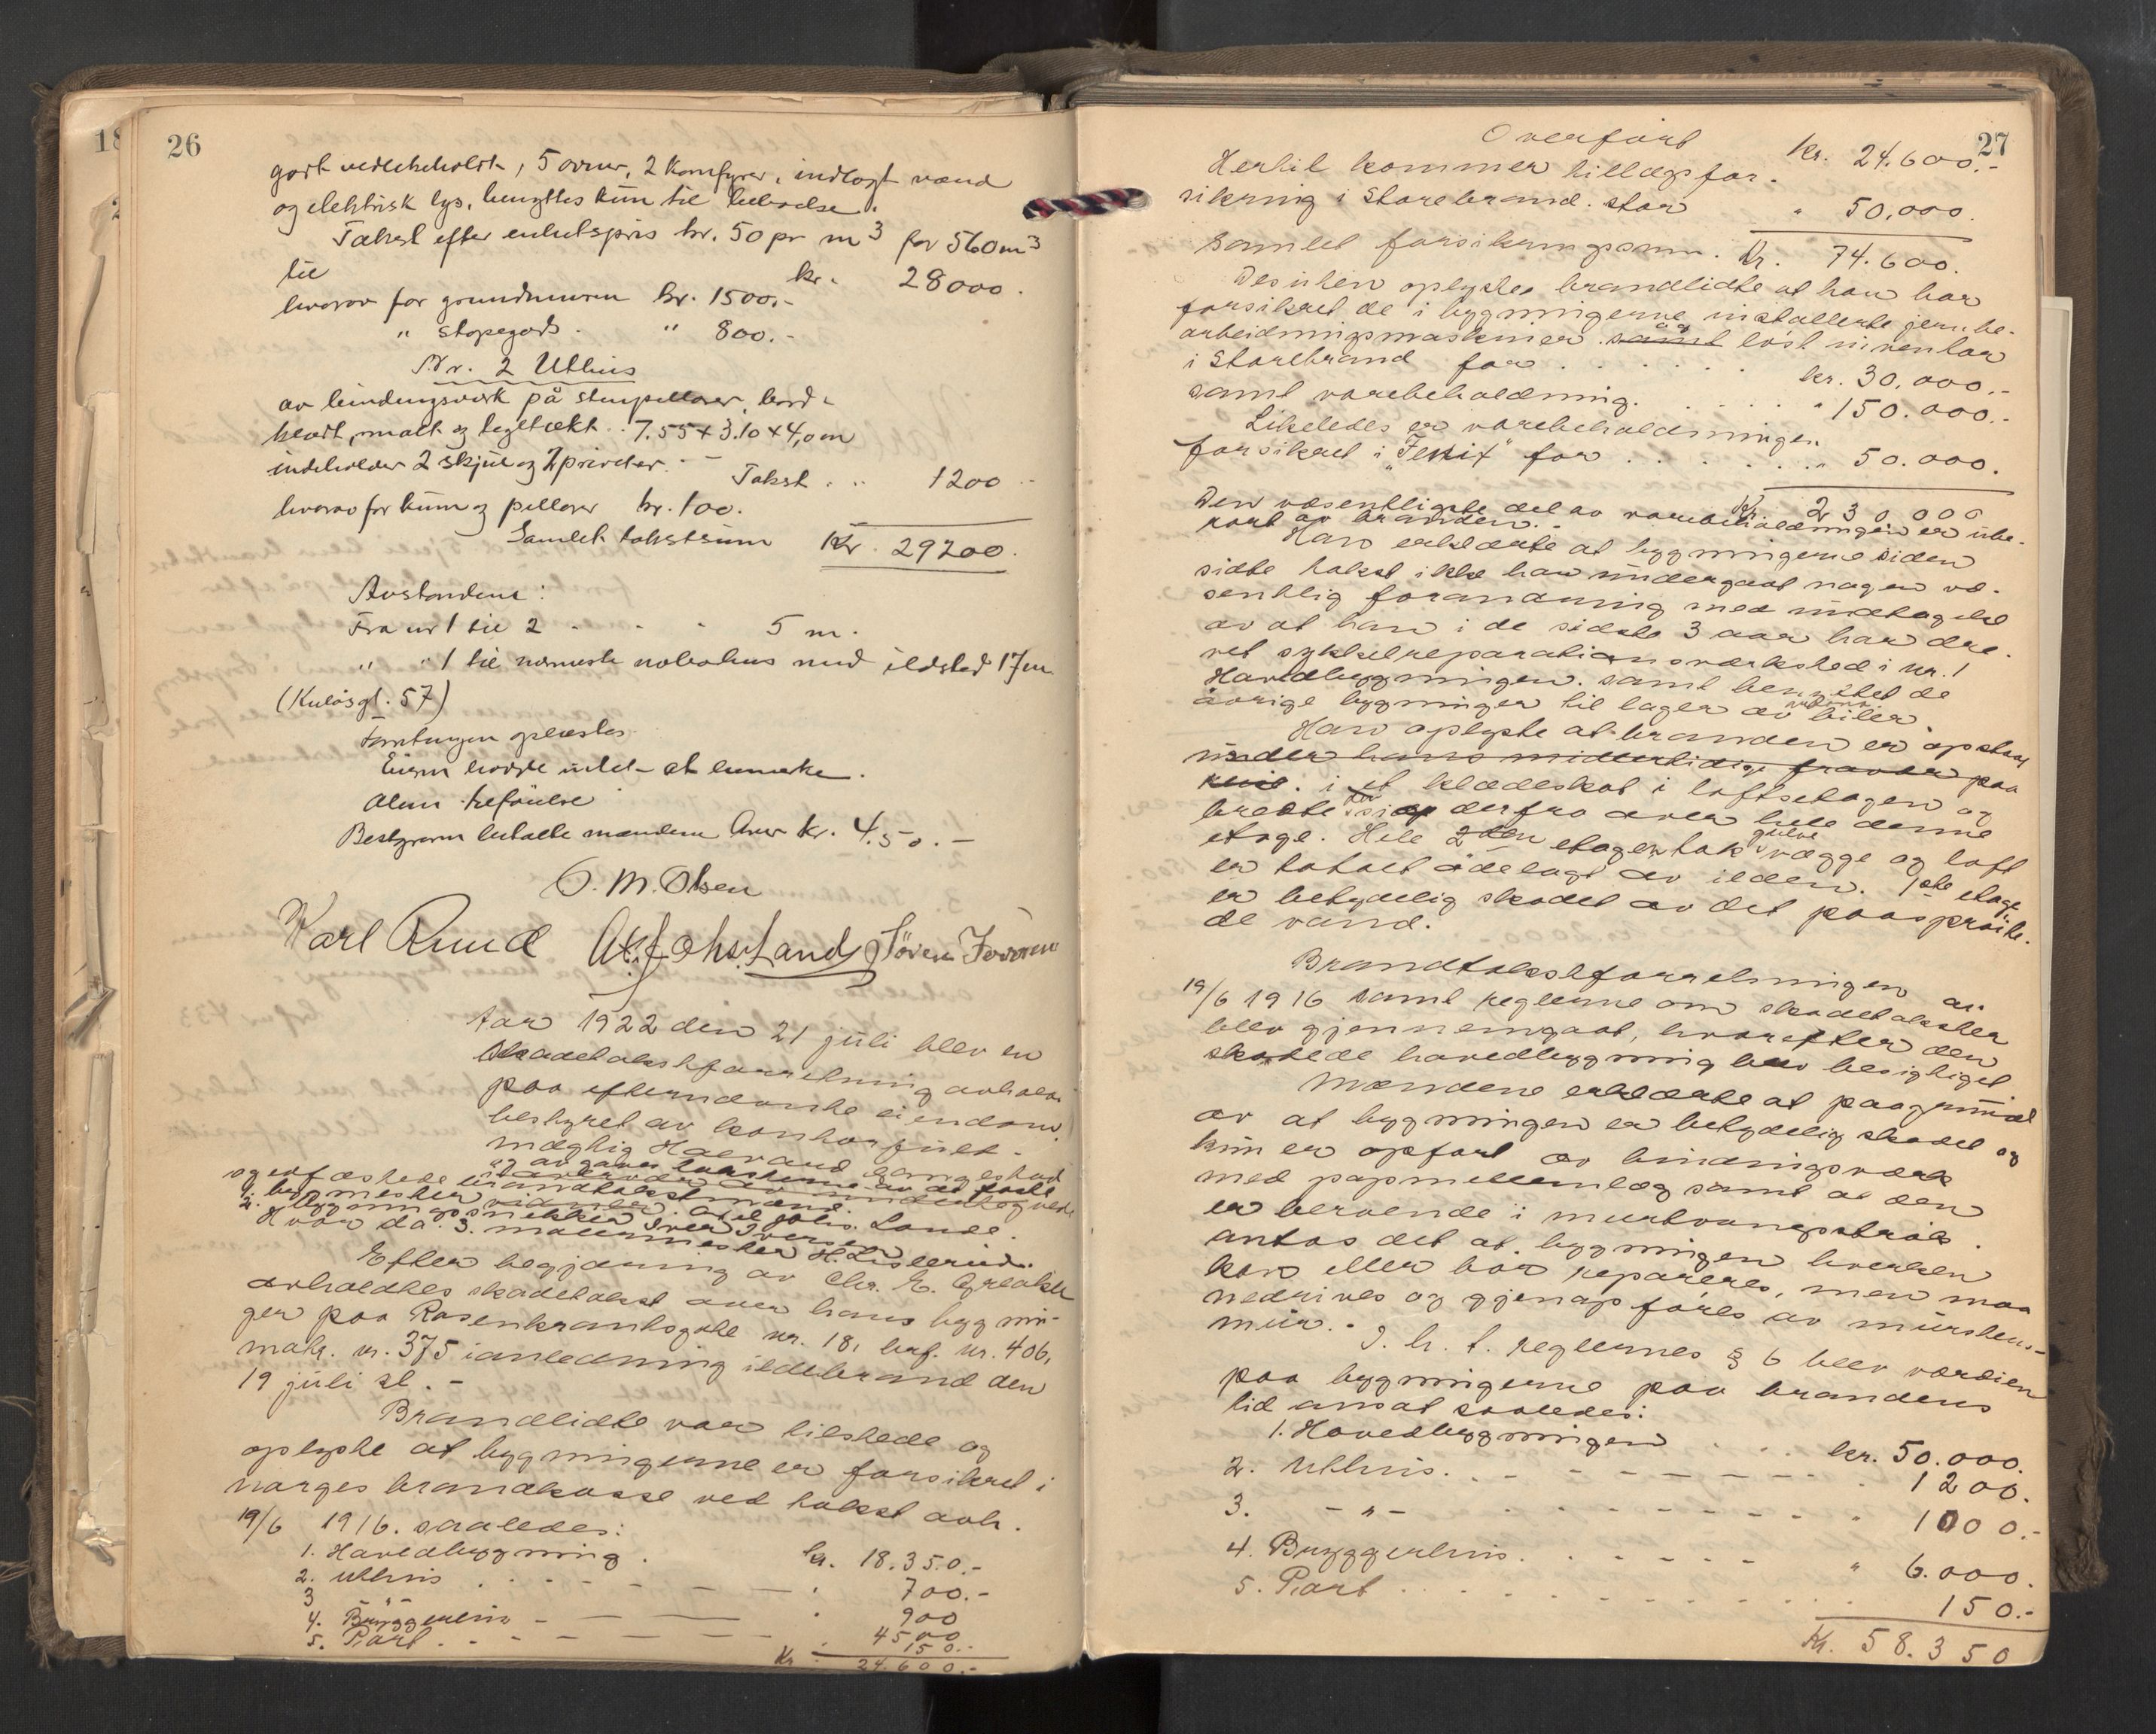 26
godt vedlikeholdt, 5 ovner, 2 Komfyrer, indlagt vand
og elektrisk lys, benyttes kun til beboelse.
Takst efter enhetspris kr. 50 pr m3 for 560 m3
til kr. 28000.
hvorav for grundmuren kr. 1500.-
" støpegods. " 800.-
Nr. 2 Uthus
av bindingsverk på stenpillarer, bord-
klædt, malt og tegltækt. 7.55 x 3.10 x 4,0 m
indeholder 2 skjul og 2 priveter. - Takst . . 1200
hvorav for kum og pillarer kr. 100.
Samlet takstsum Kr. 29200.
Avstandene:
Fra nr 1 til 2 - - - 5 m.
" " 1 til nærmeste nabohus med ildsted 17 m
(Kuløsgt. 57)
Forretningen oplæstes.
Eieren hadde intet at bemerke.
Alm. beføielse
Bestyreren betalte mændene hver kr. 4.50.-
O. M. Olsen
Karl Ruud Ax. Johs. Lande Søren Iversen
Aar 1922 den 21 juli blev en
skadetakstforretning avholdt
paa efternævnte eiendom,
bestyret av kontorfuld-
mægtig Haavard
og edfæstede brandtakstmænd:
1. bygmester Axel Johs. Lande.
2. bygningssnekker Iver Iversen
Hvor da: 3. malermester H. Lislerud.
Efter begjæring av Chr. E. Grønker
avholdtes skadetakst over hans bygnin-
ger paa Rosenkrantzgate nr. 18, brf. nr. 406,
matr. nr. 375 i anledning ildebrand den
19 juli sl. -
Brandlidte var tilstede og
oplyste at bygningerne er forsikret i
Norges brandkasse ved takst avh.
19/6 1916. saaledes:
1. Hovedbygning . kr. 18.350.-
2. Uthus . - - - — " 700.-
3 -"- " 900
4. Bryggerhus - — — 4500
5. Port . - - - — — " 150.-
Kr. 24.600.-
27
Overført kr. 24.600.-
Hertil kommer tillægsfor-
sikring i Storebrand. stor " 50,000.
Samlet forsikringssum. Kr. 74.600.
Desuten oplyste brandlidte at han har
forsikret de i bygningerne installerte jernbe-
arbeidningsmaskiner samt og løst inventar
i Storebrand for . . . . . . kr. 30.000.-
samt varebeholdning. . . . . . " 150.000.-
Likeledes er varebeholdningen
forsikret i "Fenix" for . . . . . . " 50.000.
Kr. 230000
Den væsentligste del av varebeholdningen er ube-
rørt av branden. -
Han erklærte at bygningerne siden
sidste takst ikke har undergaat nogen væ-
sentlig forandring med undtagelse
av at han i de sidste 3 aar har dre-
vet sykkelreparationsverksted i nr. 1
Hovedbygningen. samt benyttet de
øvrige bygninger til lager av biler.
Han oplyste at branden er opstaat
under hans midlertidige fravær paa
reise. i et klædeskot i loftsetagen og
bredte sig derfra over hele denne
etage. Hele 2den etagen tak gulve vægge og loft
er totalt ødelagt av ilden. 1ste etage
er betydelig skadet av det paasprøite-
de vand.
Brandtakstforretningen av
19/6 1916 samt reglerne om skadetakster
blev gjennemgaat, hvorefter den
skadede hovedbygning blev besigtiget
Mændene erklærte at paa grund
av at bygningen er betydelig skadet og
kun er opført av bindingsværk
med papmellemlæg samt at den
er beroende i murtvangsstrøk.
antas det at bygningen hverken
kan eller bør repareres, men maa
nedrives og gjenopføres av mursten-
mur. -
I. h. t. reglernes § 6 blev værdien
paa bygningerne paa brandens
tid ansat saaledes:
1. Hovedbygningen . . . kr. 50.000.
2. Uthus. . - - - - - - - - 1200.
3. - " - - - - - - - " 1000.-
4. Bryggerhus. . . - - - - " 6.000.
5. Port . . - - - - - - . . 150.-
Kr. 58.350